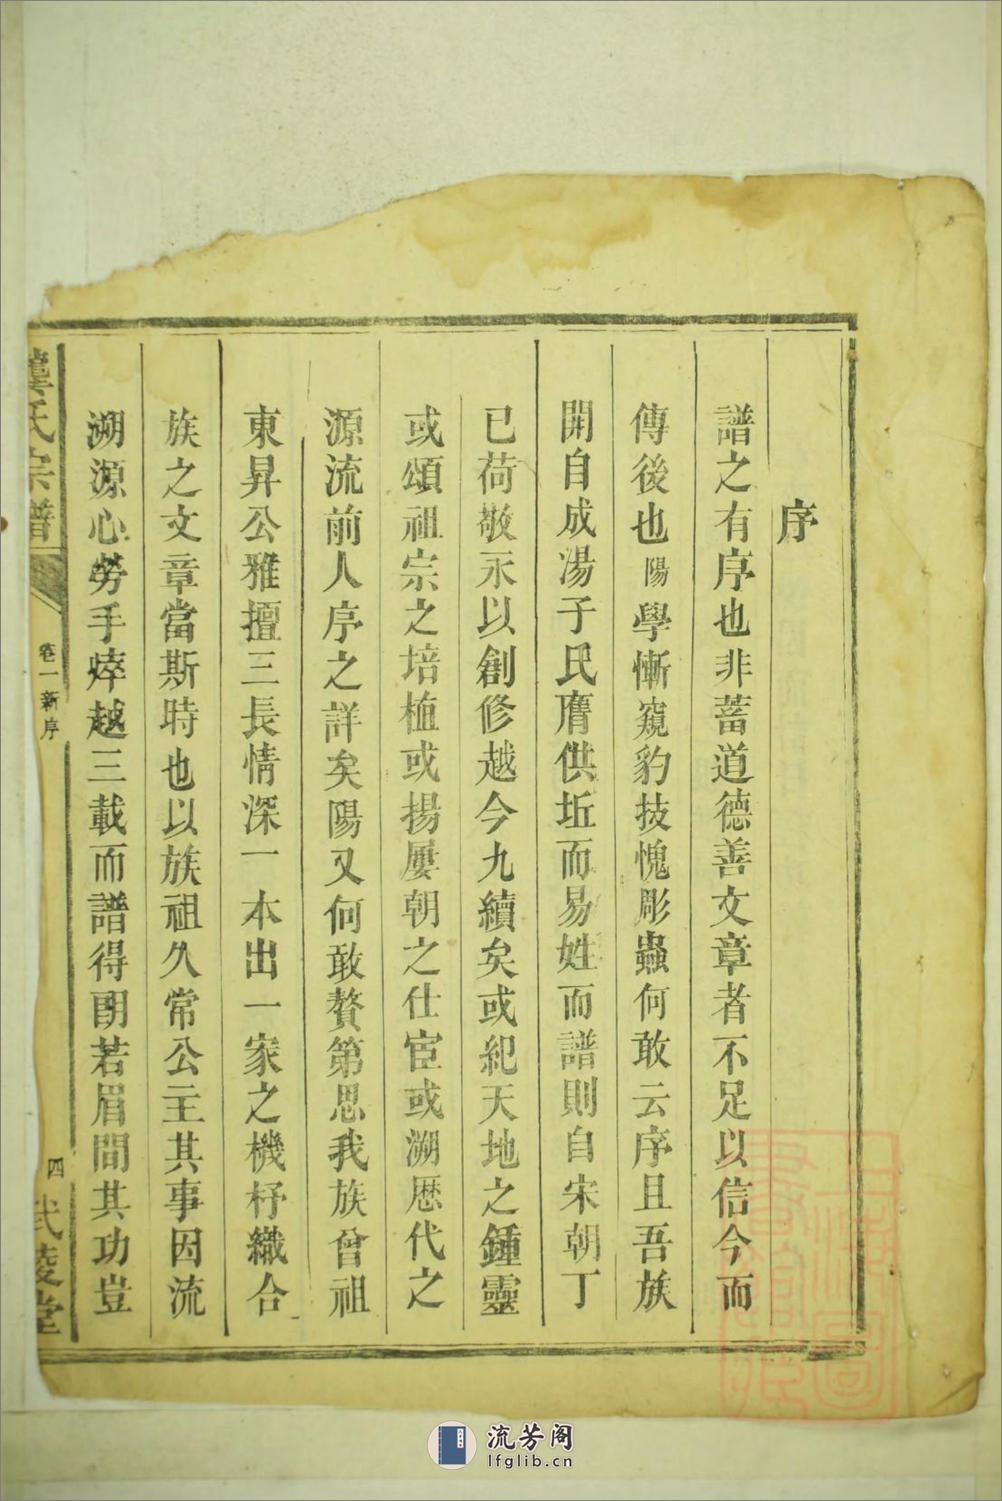 序
譜之有序也非蓄道德善文章者不足以信今而
傳後也陽學慚窺豹技愧彫蟲何敢云序且吾族
開自成湯子氏膺供坵而易姓而譜則自宋朝丁
已荷敬永以創修越今九續矣或紀天地之鍾靈
或頌祖宗之培植或揚屢朝之仕宦或溯歷代之
源流前人序之詳矣陽又何敢贅第思我族曾祖
東昇公雅擅三長情深一本出一家之機杼織合
族之文章當斯時也以族祖久常公主其事因流
溯源心勞手瘁越三載而譜得朗若眉間其功豈
龔氏宗譜
卷一新序
四
武陵堂
上海圖書館藏
流芳阁
lfglib.cn